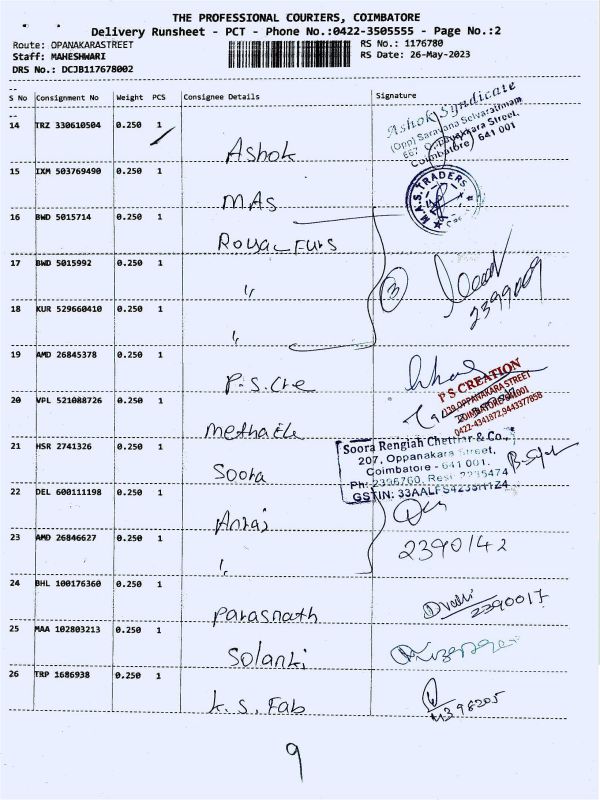 THE PROFESSIONAL COURIERS, COIMBATORE
Delivery Runsheet - PCT - Phone No.:0422-3505555 - Page No.:2
Route: OPANAKARASTREET
RS No.: 1176780
Staff: MAHESHWARI
RS Date: 26-May-2023
DRS No.: DCJB117678002
S No Consignment No Weight PCS Consignee Details Signature
14 TRZ 330610504 0.250 1 Ashok
Ashok Syndicate
(Opp) Saravana Selvarathnam
Oppanakkara Street,
Coimbatore 641 001
15 IXM 503769490 0.250 1 MAS
M.A.S. TRADERS
16 BWD 5015714 0.250 1 Royal Furs
17 BWD 5015992 0.250 1 "
3
2399009
18 KUR 529660410 0.250 1 "
19 AMD 26845378 0.250 1 P.S.Cre
P S CREATION
OPPANAKARA STREET
COIMBATORE-641001
0422-4341872,9443377858
20 VPL 521088726 0.250 1 Metha Ele
21 HSR 2741326 0.250 1 Soora
Soora Rengiah Chettiar & Co.,
207, Oppanakara Street,
Coimbatore - 641 001.
Ph: 2396760, Resi: 2235474
GSTIN:
22 DEL 600111198 0.250 1
23 AMD 26846627 0.250 1 "
2390142
24 BHL 100176360 0.250 1 Parasnath
2390017
25 MAA 102803213 0.250 1 Solanki
26 TRP 1686938 0.250 1 K.S. Fab
9